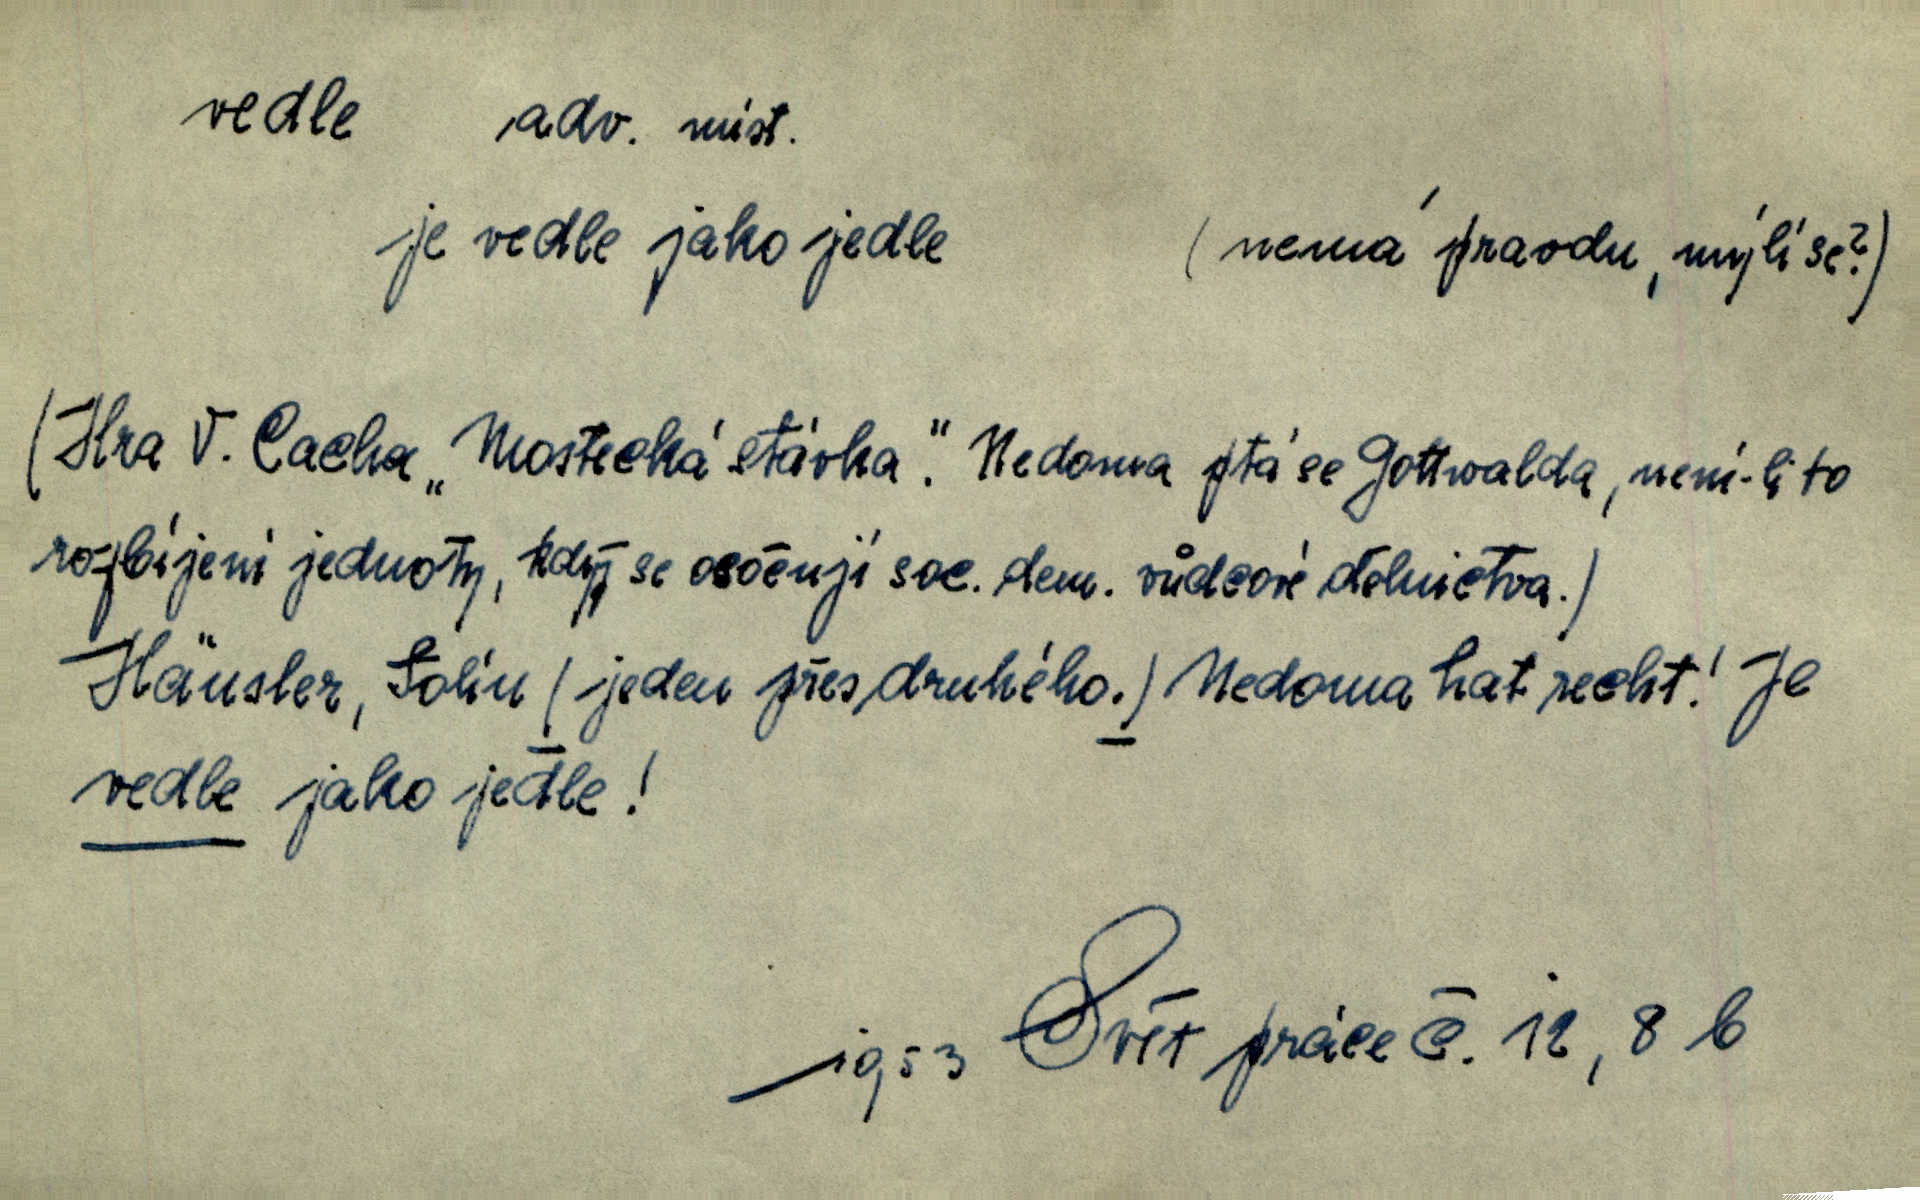 vedle adv. míst.
je vedle jako jedle (nemá pravdu, mýlí se?)
(Hra V. Cacha „Mostecká stávka". Nedoma ptá se Gottwalda, není-li to
rozbíjení jednoty, když se osočují soc. dem. vůdcové dělnictva.)
Häusler, Solín (jeden přes druhého.) Nedoma hat recht! Je
vedle jako jedle!
1953 Svět práce č. 12, 8 b